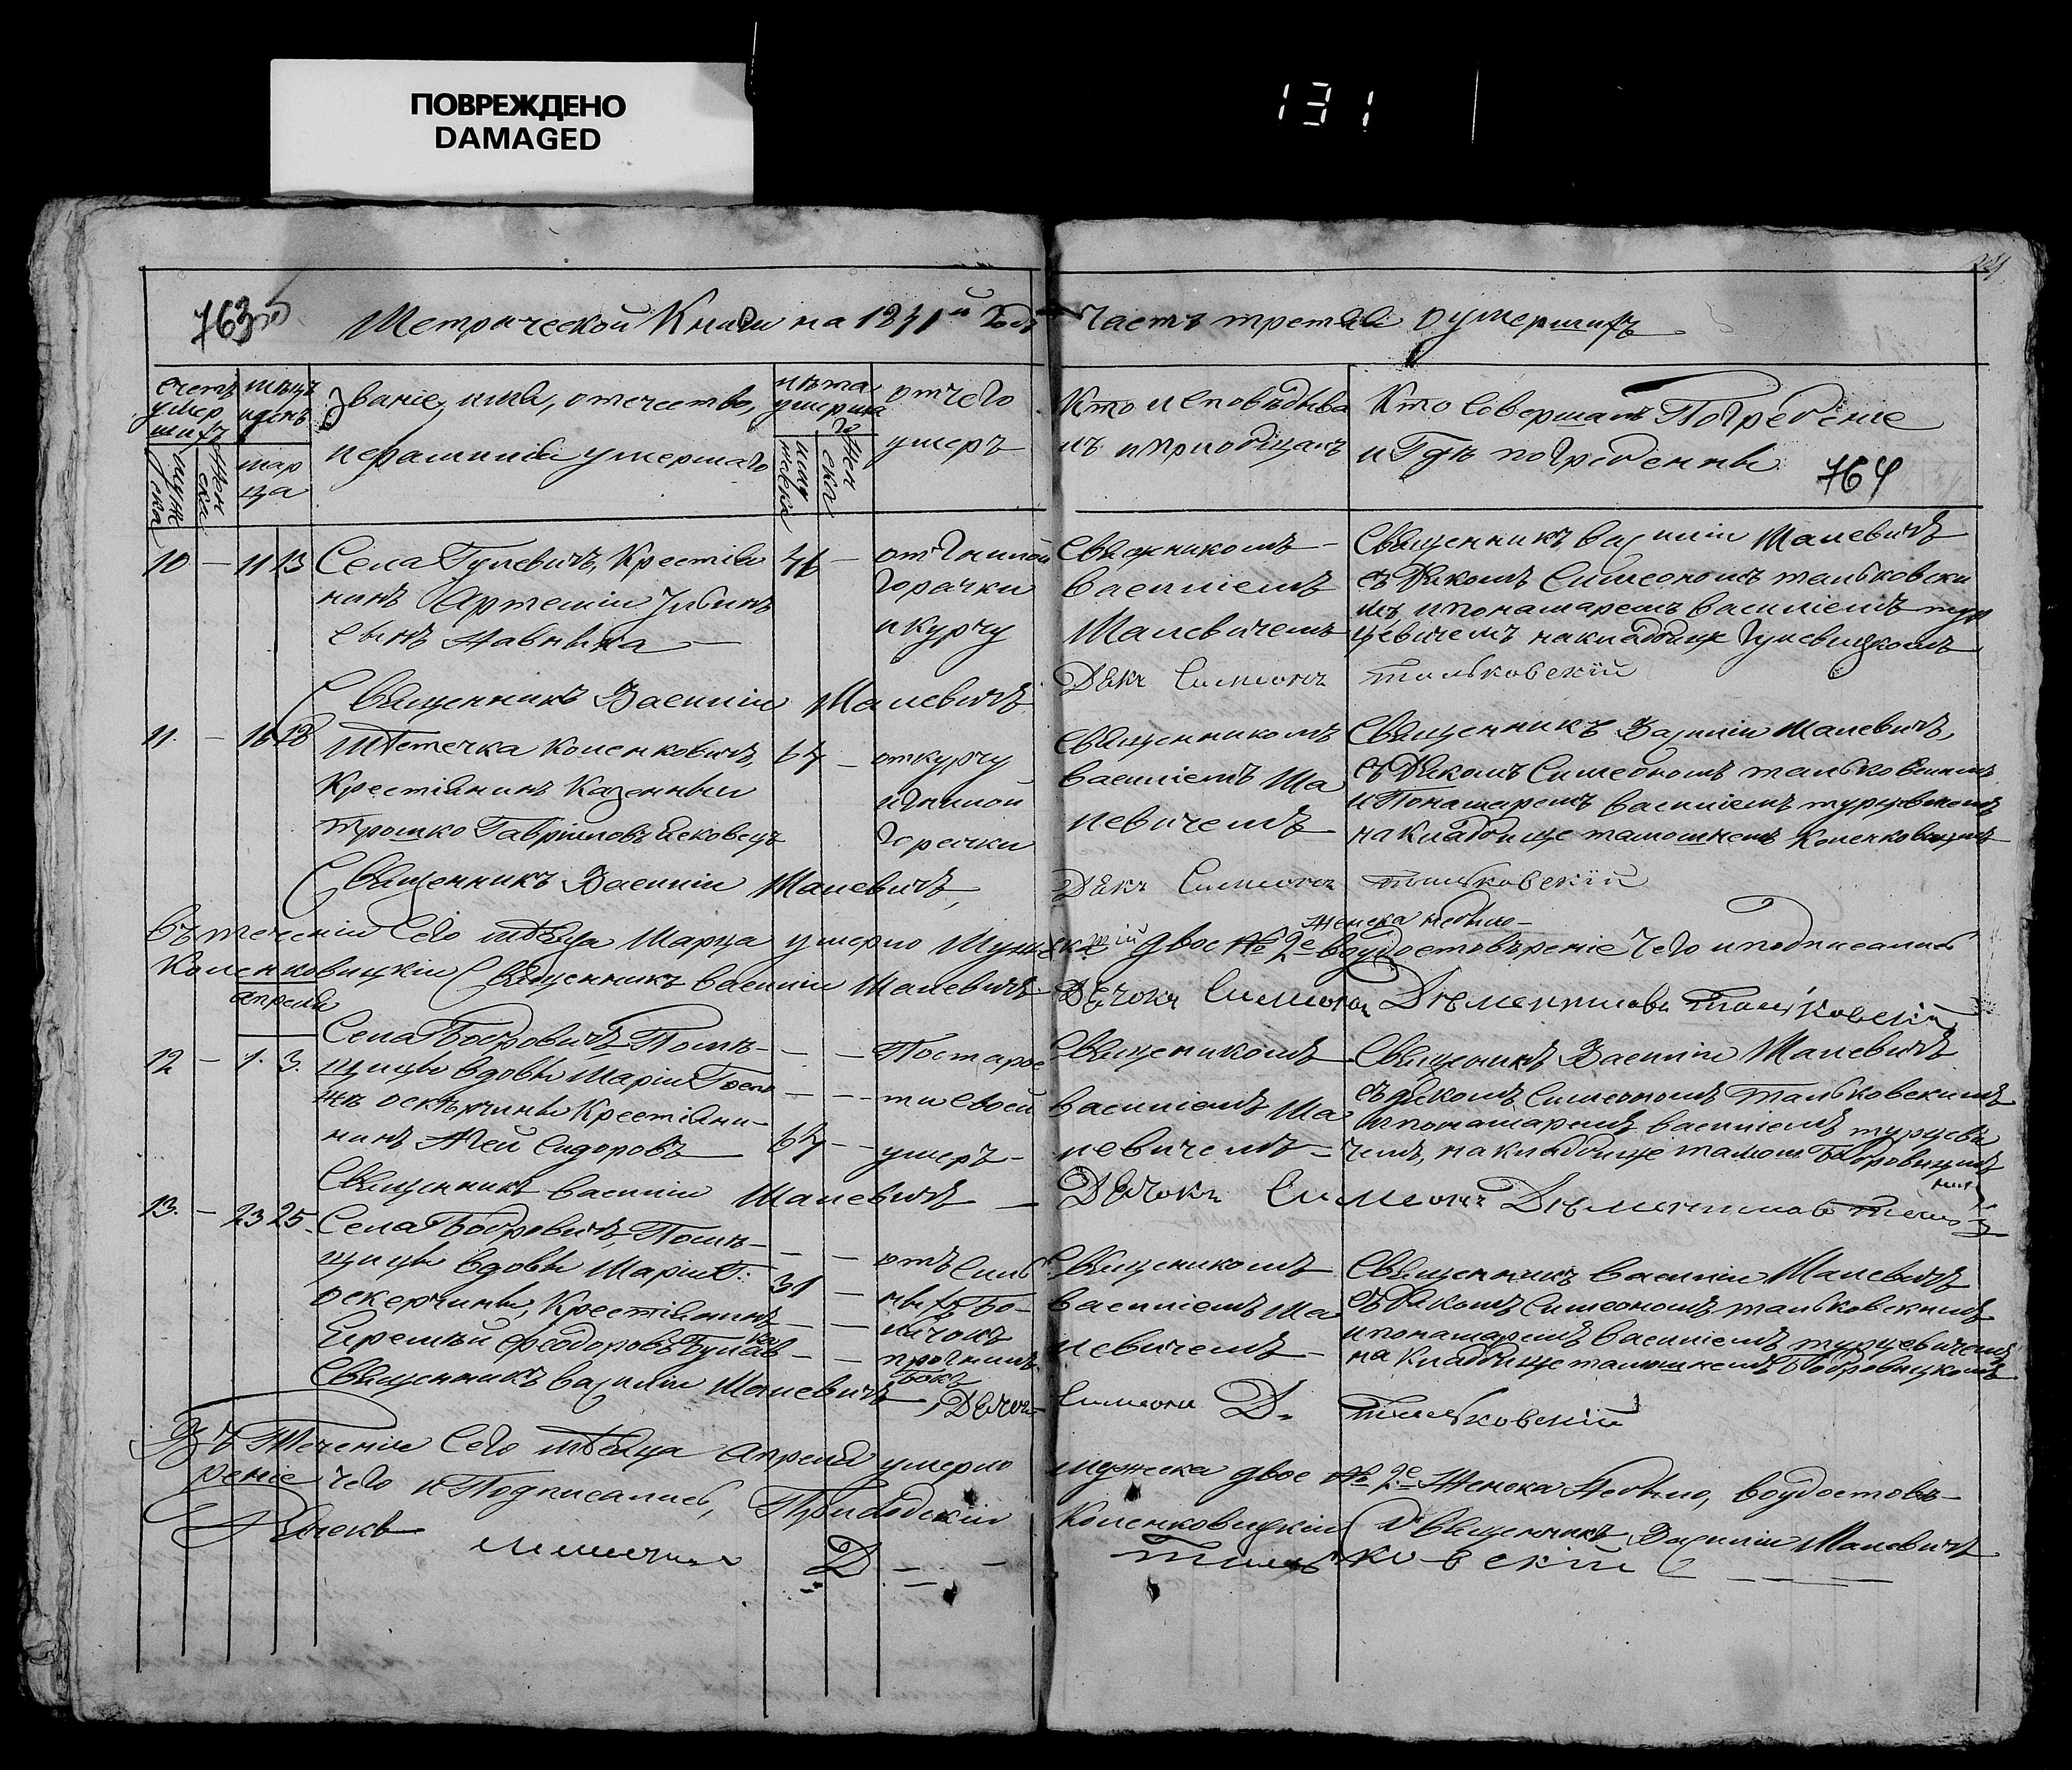 ПОВРЕЖДЕНО
DAMAGED
131
763
Метрической Книги на 1841й Годъ Часть третья о умершихъ
счетъ умершихъ
мужеска
женска
мѣцъ и день
марца
Званіе, имя, отчество,
и фамилія умершаго
лѣта умершаго
мужеска
женска
отчего
умеръ
Кто исповѣдыва
лъ и приобщалъ
Кто Совершалъ Погребеніе
и Гдѣ погребенны
764
10 — 11 13 Села Гулевичъ, Крестія
нинъ Артемій
сынъ —
46 — отъ гнилой
горячки
и курчу
Священникомъ —
Василіемъ
Малевичемъ
Священникъ Василій Малевичъ
съ Дякомъ Симеономъ Тальковски
мъ и понамаремъ Василіемъ тур
цевичемъ на кладбище Гулевицкомъ
Священникъ Василій Малевичъ
Дякъ Симеонъ Тальковскій
11. — 16 18 Мѣстечка Коленковичъ,
Крестіянинъ Казенный
Трошко Гавріиловъ Ясковецъ
67 — от курчу
и гнилой
горячки
Священникомъ
Василіемъ Ма
левичемъ
Священникъ Василій Малевичъ,
съ Дякомъ Симеономъ тальковскимъ
и Понамаремъ Василіемъ турцевичемъ
на кладбище тамошнемъ Коленковицкомъ
Священникъ Василій Малевичъ,
Дякъ Симеонъ Тальковскій
Въ теченіи Сего мѣсяца Марца умерло Мужеска двое № 2е женска небыло — в удостовѣреніе чего и подписались
Коленковицкій Священникъ Василій Малевичъ Дячокъ Симеонъ Дѣментиловъ Тальковскій
апрѣля
12 — 1. 3. Села Бобровичъ, Помѣ-
щицы вдовы Маріи Госпо
жѣ оскѣрчины Крестіяни-
нинъ Агей Сидоровъ
67 — По старос
ти своей
умеръ —
Священникомъ
Василіемъ Ма
левичемъ —
Священикъ Василій Малевичъ
съ дякомъ Симеономъ Тальковскимъ
и понамаремъ Василіемъ турцеви
чемъ, на кладбище тамош Бобровицкомъ
Священникъ Василій Малевичъ —
Дячокъ Симеонъ Дѣментиловъ
13. — 23 25. Села Бобровичъ, Помѣ-
щицы вдовы Маріи Г:
оскерчины, Крестіянинъ
Еремѣй Феодоровъ
31 — отъ Силь
ныхъ Бо-
лячокъ
Священикомъ
Василіемъ Ма
левичемъ —
Священникъ Василій Малевичъ
съ дякомъ Симеономъ тальковскимъ
и понамаремъ Василіемъ турцевичемъ
на Кладбище тамошнемъ Бобровицкомъ
Священникъ Василій Малевичъ, Дячокъ Симеонъ Д. Тальковскій
Въ Теченіи Сего мѣсяца апреля умерло мужеска двое № 2е Женска Небыло, въ удостовѣ-
реніе чего и Подписались, Приходскій Коленковицкій Священникъ Василій Малевичъ
Дячокъ Симеонъ Д. Тальковскій